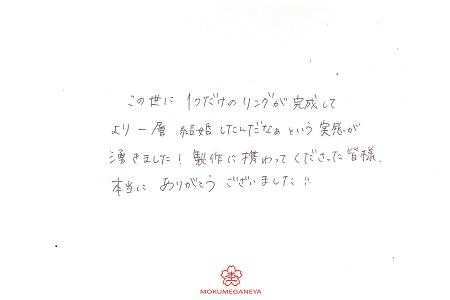 この世に 1つだけの リングが 完成して
より一層 結婚したんだなぁ という 実感が
湧きました！ 製作に携わって くださった皆様、
本当に ありがとう ございました!!
MOKUMEGANEYA